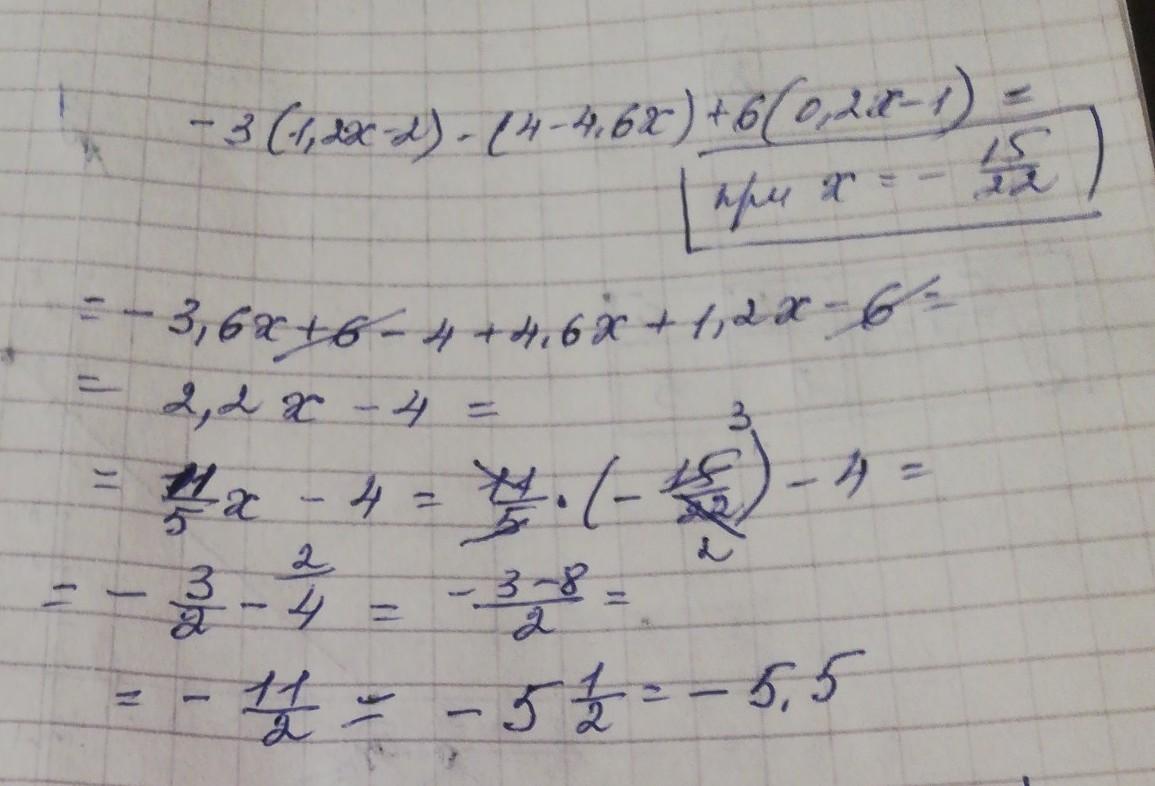 -3(1,2x-2)-(4-4,6x)+6(0,2x-1)=
при x = - 15/22
= - 3,6x+6-4+4,6x+1,2x-6=
= 2,2x-4=
= 11/5 x - 4 = 11/5 · (- 15/22) - 4 =
3
2
= - 3/2 - 2/4 = -3-8/2 =
= - 11/2 = - 5 1/2 = - 5,5